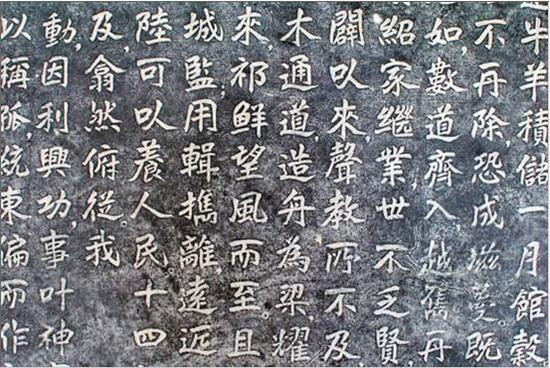 牛羊積儲一月館穀。
不再除,恐成滋蔓。既
如,數道齊入,越嶲丹
紹家繼業,世不乏賢,
闢以來,聲教所不及,
木通道,造舟為梁,耀
來,祁鮮望風而至。且
城監,用輯攜離,遠近
陸可以養人民十四
及,翕然俯從。我
動,因利興功,事叶神
以稱孤,統東偏而作